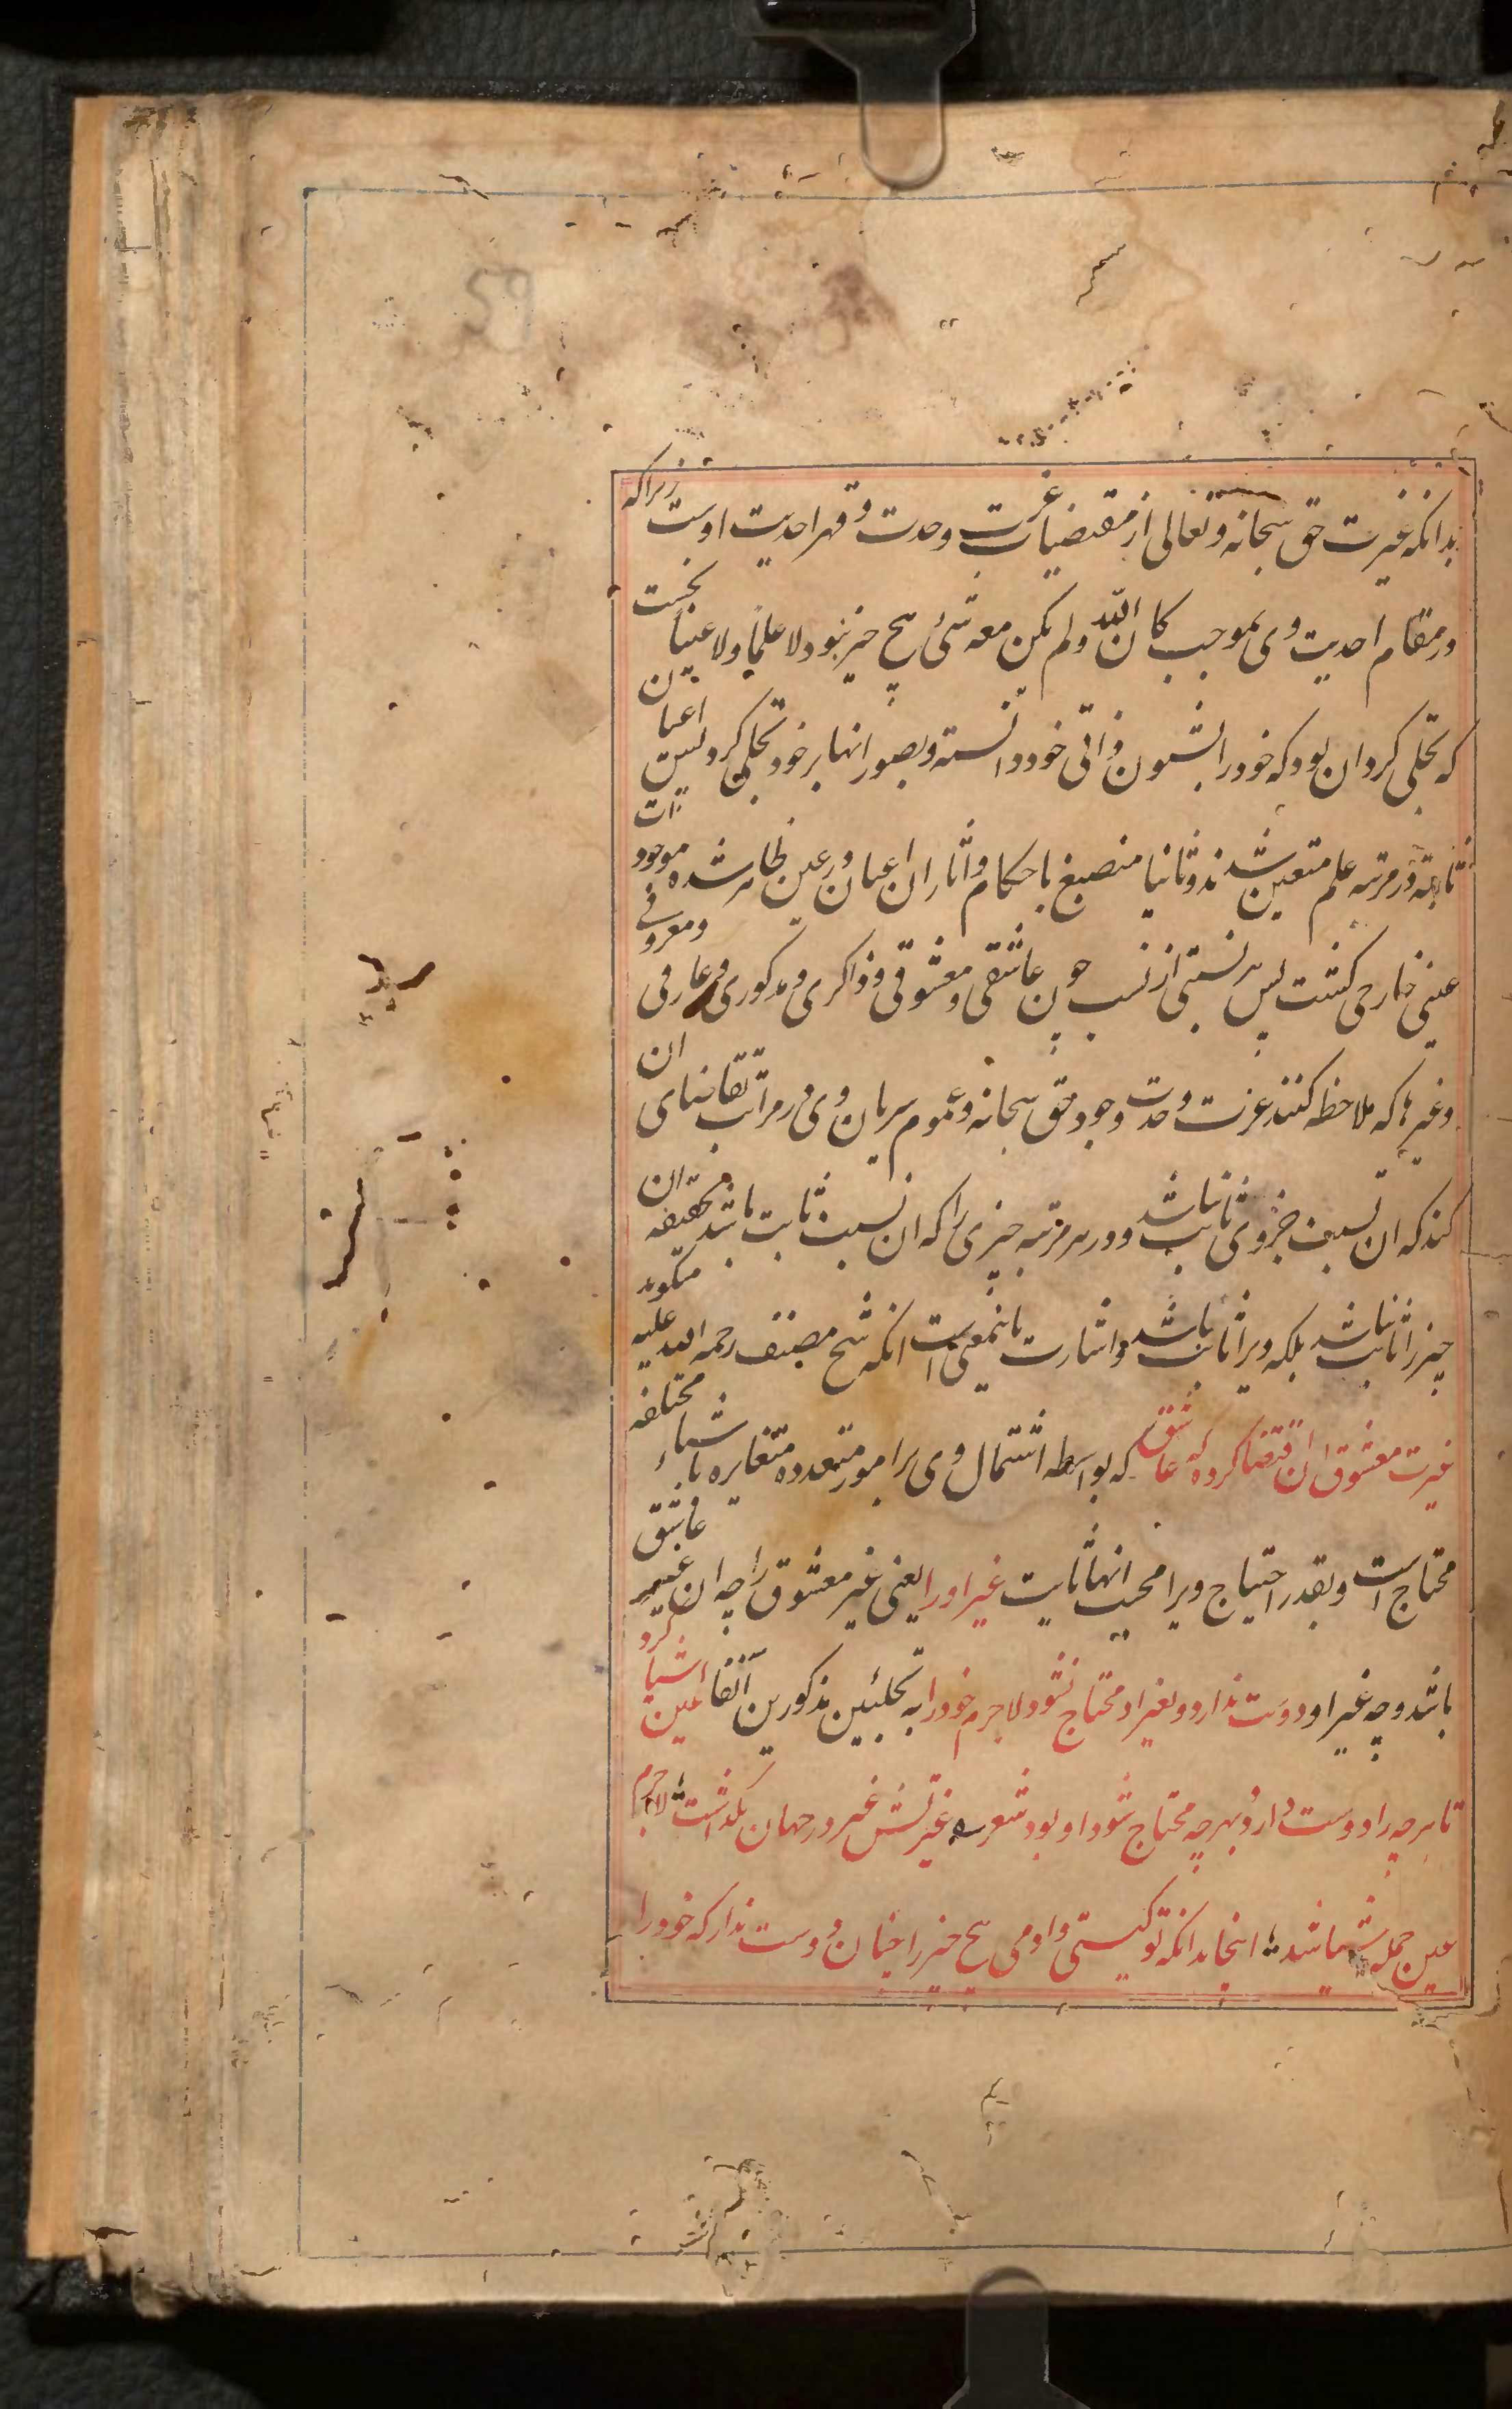 بدانکه غیرت حق سبحانه وتعالی از مقتضیات عزت وحدت وقهر احدیت اوست زیراکه
در مقام احدیت وی بموجب کان الله ولم یکن معه شیٔ هیچ چیز نبود لا علماً ولا عیناً نخست
که تجلی کرد ان بود که خود را بشیون ذاتی خود دانسته وبصور انها بر خود تجلی کرد پس اعیان
ثابته در مرتبه علم متعین شدند وثانیا منصبغ باحکام واثار ان اعیان در عین ظاهر شده موجودات
عینی خارجی کشت پس هر نسبتی از نسب چون عاشقی ومعشوقی وذاکری ومذکوری وعارفی ومعروفی
وغیرها که ملاحظه کنند عزت وحدت وجود حق سبحانه وعموم سریان وی در مراتب تقاضای ان
کند که ان نسبت جز ویرا ثابت نباشد ودر هر مرتبه چیزی را که ان نسبت ثابت باشد بحقیقه ان
چیز را ثابت نباشد بلکه ویرا ثابت باشد واشارت باینمعنی است انکه شیخ مصنف رحمه الله علیه میکوید
غیرت معشوق ان اقتضا کرد که عاشق که بواسطه اشتمال وی بر امور متعدده متغایره باشیاء مختلفه
محتاج است وبقدر احتیاج ویرا محبت انها ثابت غیر او را یعنی غیر معشوق را چه ان غیر عاشق
باشد وچه غیر او دوست ندارد وبغیر او محتاج نشود لاجرم خود را به تجلیین مذکورین آنفا عین اشیا کرد
تا هر چه را دوست دارد وبهرچه محتاج شود او بود شعر غیرتش غیر در جهان نکذاشت لاجرم
عین جمله اشیا شد اینجا بدانکه تو کیستی وادمی هیچ چیز را چنان دوست ندارد که خود را